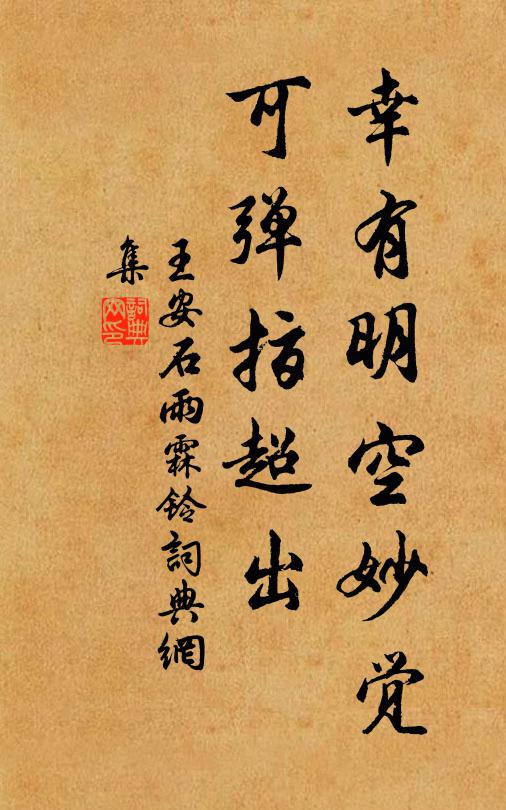 幸有明空妙觉
可弹指超出
王安石雨霖铃詞典網
集
詞典